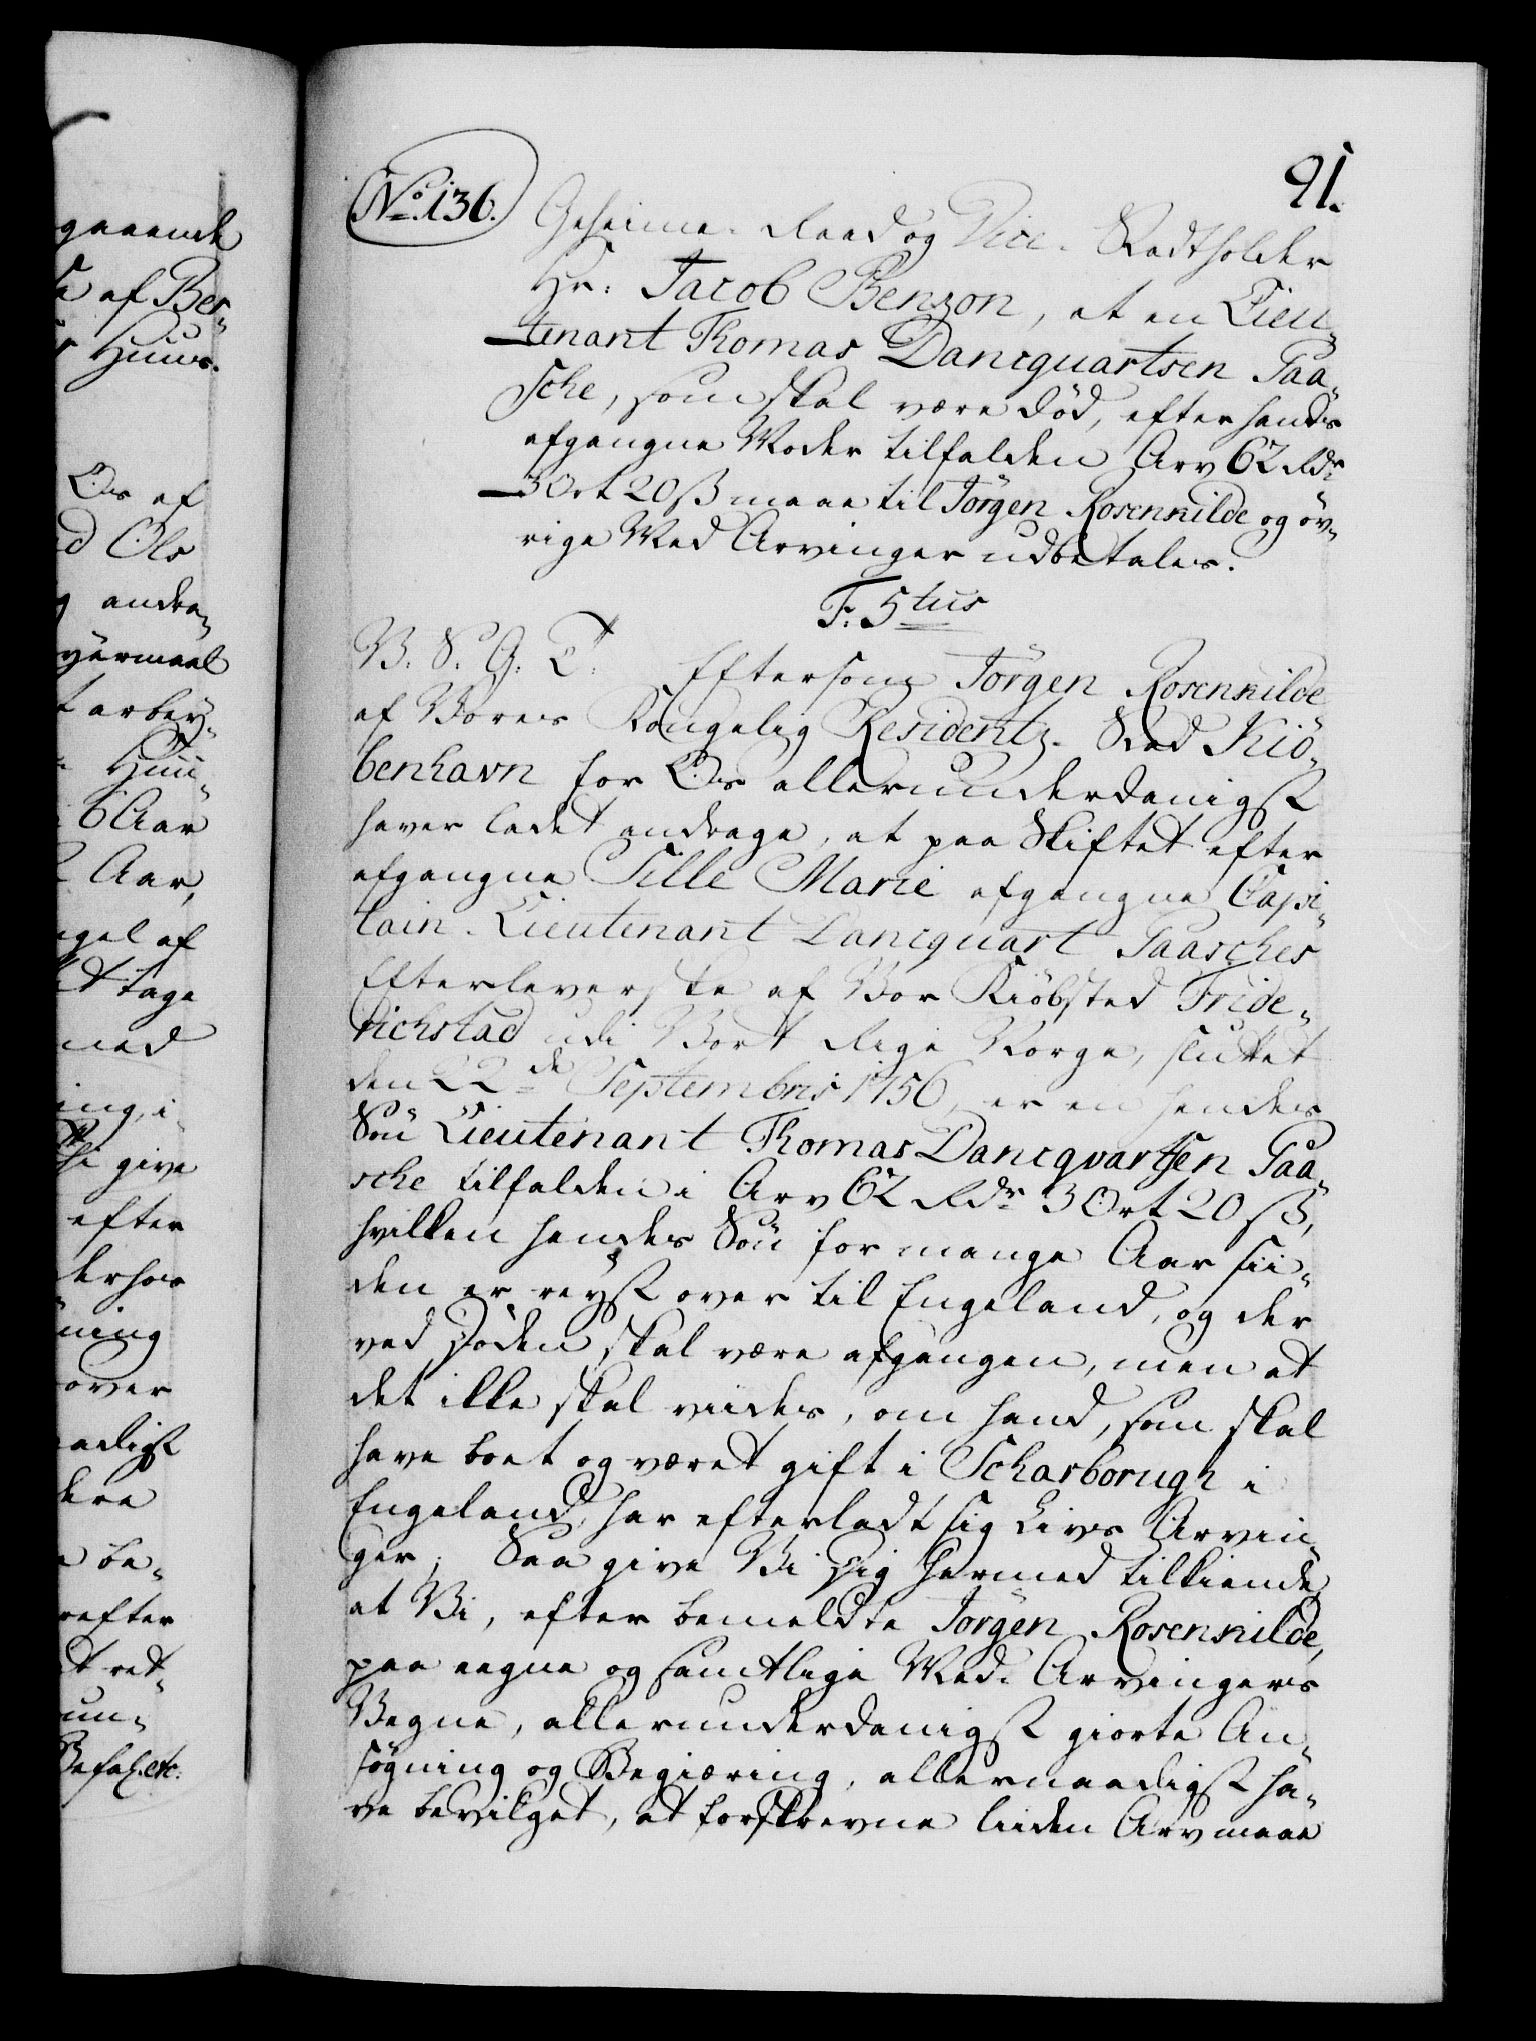 gaaende
af Ber„
Huus.
Os af
Ols
andra„
yërmaal
t arbey„
Huu„
6 Aar
Aar,
gel af
tage
med
ing, i
give
efter
derhos
ning
over
naadigst
dere
be„
refter
t ret„
un„
Befal. etc.
91.
No. 136. Geheime-Raad og Vice-Stadtholder
Hr: Jacob Benzon, at en Lieu„
tenant Thomas Dancquartsen Paa„
sche, som skal være död, efter hands
afgangne Moder tilfalden Arv 62 Rdr
3 Ort 20 ß maae til Jörgen Rosenkilde og öv„
rige Med Arvinger udbetales.
F: 5tus
V. S. G. T. Eftersom Jörgen Rosenkilde
af Vores Kongelig Residentz-Stad Kiö„
benhavn for Os allerunderdanigst
haver ladet andrage, at paa Skiftet efter
afgangne Sille Marie afgangne Capi„
tain-Lieutenant Dancquart Paasches
Efterleverske af Vor Kiöbsted Fride„
richstad udi Vort Rige Norge, sluttet
den 22de Septembris 1756, er en hendes
Sön Lieutenant Thomas Dancqvartsen Paa„
sche tilfalden i Arv 62 Rdr 3 Ort 20 ß,
hvilken hendes Sön for mange Aar sii„
den er reyst over til Engeland, og der
ved Döden skal være afgangen, men at
det ikke skal viides, om hand, som skal
have boet og været gift i Scharborugh i
Engeland, har efterladt sig Livs Arvin„
ger; Saa give Vi Dig hermed tilkiende,
at Vi, efter bemeldte Jörgen Rosenkilde,
paa eegne og samtlige Med-Arvingers
Vegne, allerunderdanigst giorte An„
sögning og Begiæring, allernaadigst ha„
ve bevilget, at forskrevne liiden Arv maae